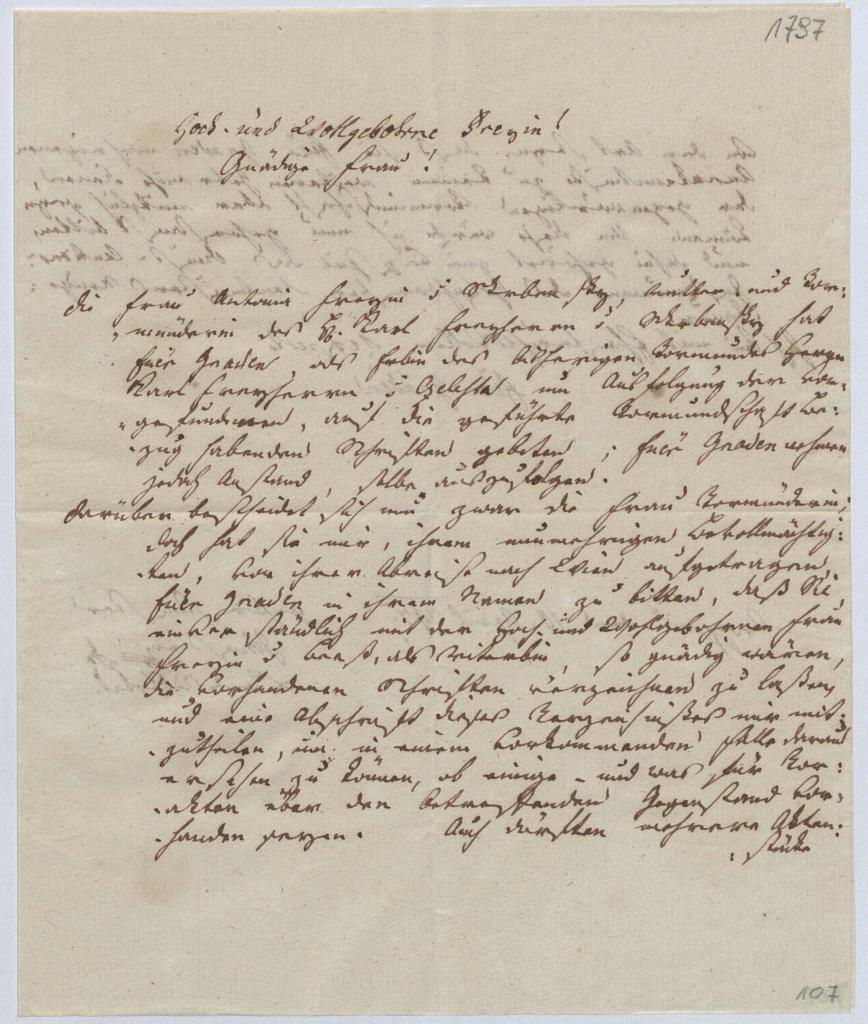 1797
Hoch- und Wollgebohrne Freyin!
Gnädige Frau!
die Frau Antonia Freyin v Skrbensky, Mutter und Vor-
münderin des H. Karl Freyherrn v Skrbensky hat
Euer Gnaden, als Erbin des bisherigen Vormundes Herrn
Karl Freyherrn v Czelesta um Ausfolgung der vor-
gefundenen, auf die geführte Vormundschaft Be-
zug habenden Schriften gebeten; Euer Gnaden nehmen
jedoch Anstand, selbe auszufolgen.
Darüber bescheidet sich nun zwar die Frau Vormünderin;
doch hat sie mir, ihrem nunmehrigen Bevollmächtig-
ten, vor ihrer Abreise nach Wien aufgetragen,
Euer Gnaden in ihrem Namen zu bitten, daß Sie
einverständlich mit der Hoch- und Wohlgebohrnen Frau
Freyin v Beeß, als Miterbin, so gnädig wären,
die vorhandenen Schriften verzeichnen zu lassen,
und eine Abschrift dieses Verzeichnißes mir mit-
zutheilen, um in einem vorkommenden Falle daraus
ersehen zu können, ob einige – und was für Vor-
akten über den betreffenden Gegenstand vor-
handen seyen. Auch dürften mehrere Akten-
stücke
107